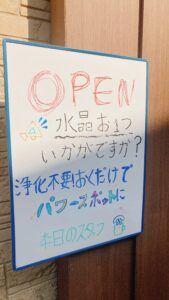 OPEN
水晶お1つ
いかがですか?
浄化不要おくだけで
パワースポットに
本日のスタッフ